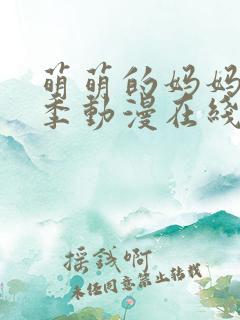 萌萌的妈妈
季動漫在綫
摇錢啊
未经同意禁止转载